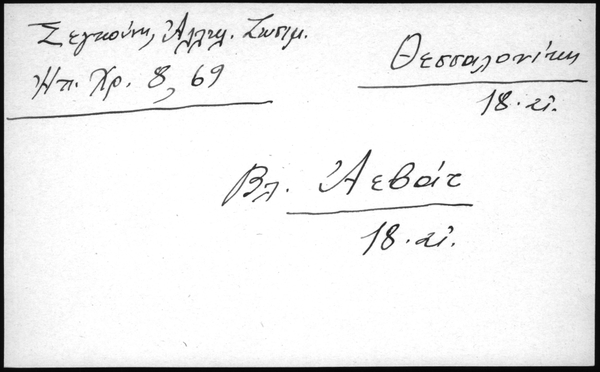 Σεγκούνη, Ἀλληλ. Ζωσιμ.
Ἠπ. Χρ. 8, 69
Θεσσαλονίκη
18. αἰ.
Βλ. Ἀεβάτ
18. αἰ.